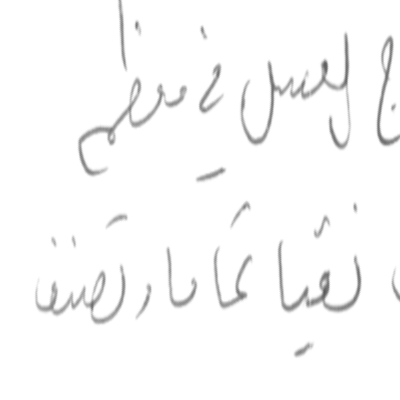 العسل في معظم
نقيا تماما وتصنف